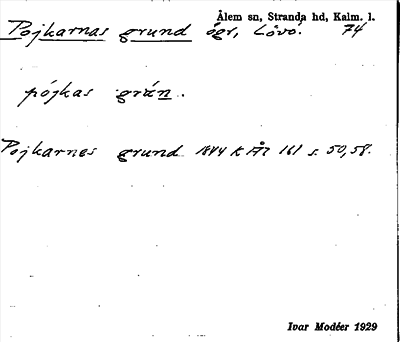 Ålem sn, Stranda hd, Kalm. l.
Pojkarnas grund ögr, Lövö. 74
pójkas grún.
Pojkarnes grund 1844 K År 161 s. 50,58.
Ivar Modéer 1929